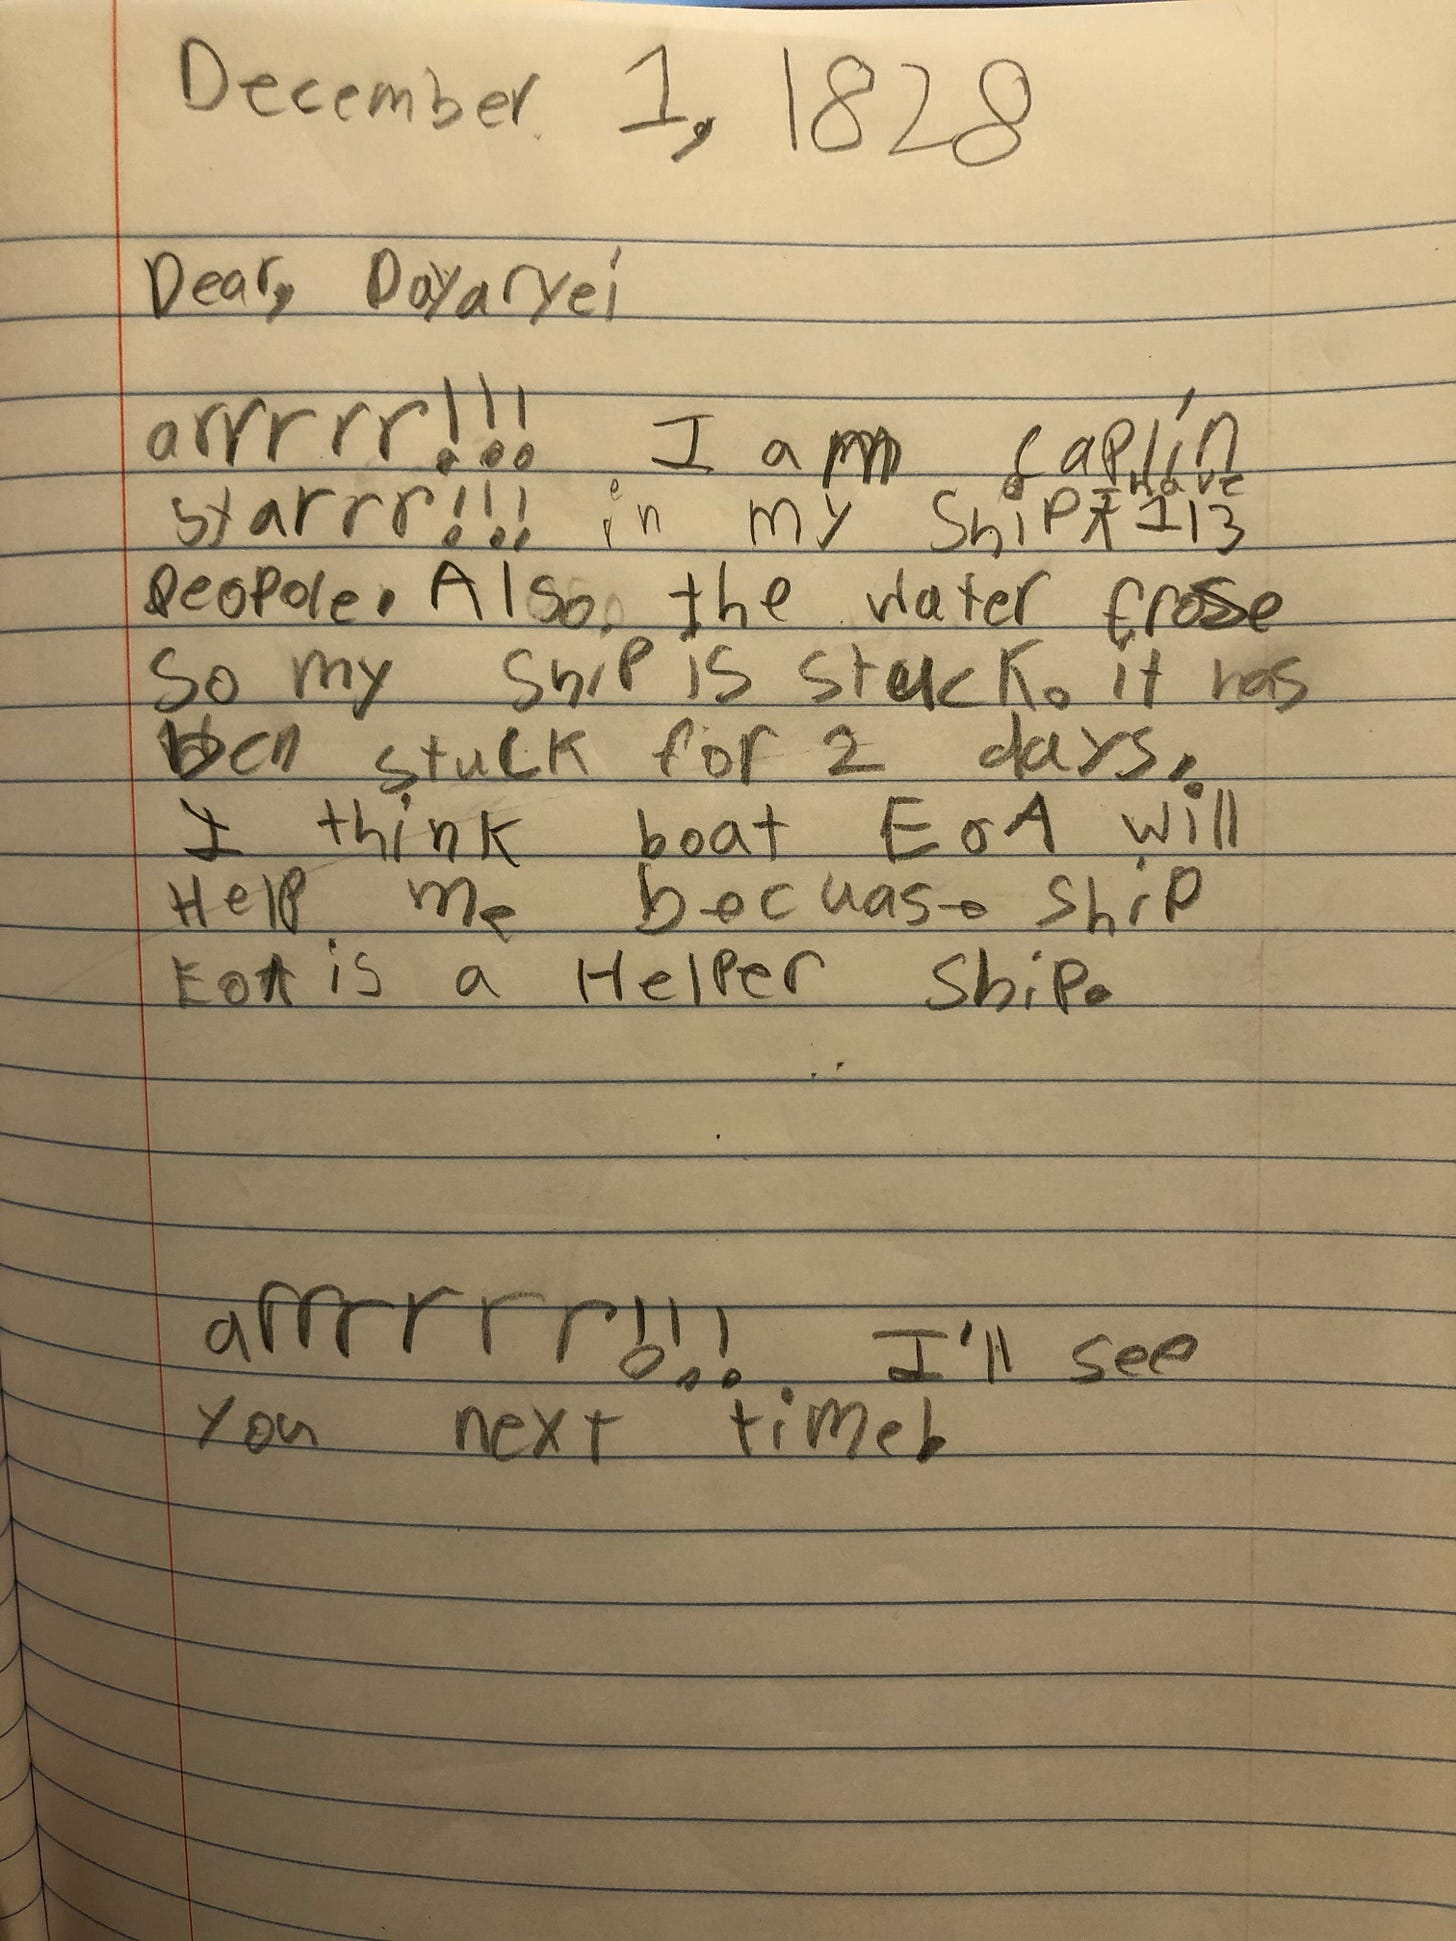 December 1, 1828
Dear, Dayaryei
arrrrrr!!! I am captin
starrr!!! in my Ship I have 113
peopole. Also, the water frose
So my ship is stuck. it has
ben stuck for 2 days.
I think boat EoA will
Help me becuase ship
EoA is a Helper Ship.
arrrrrrr!!! I'll see
you next time